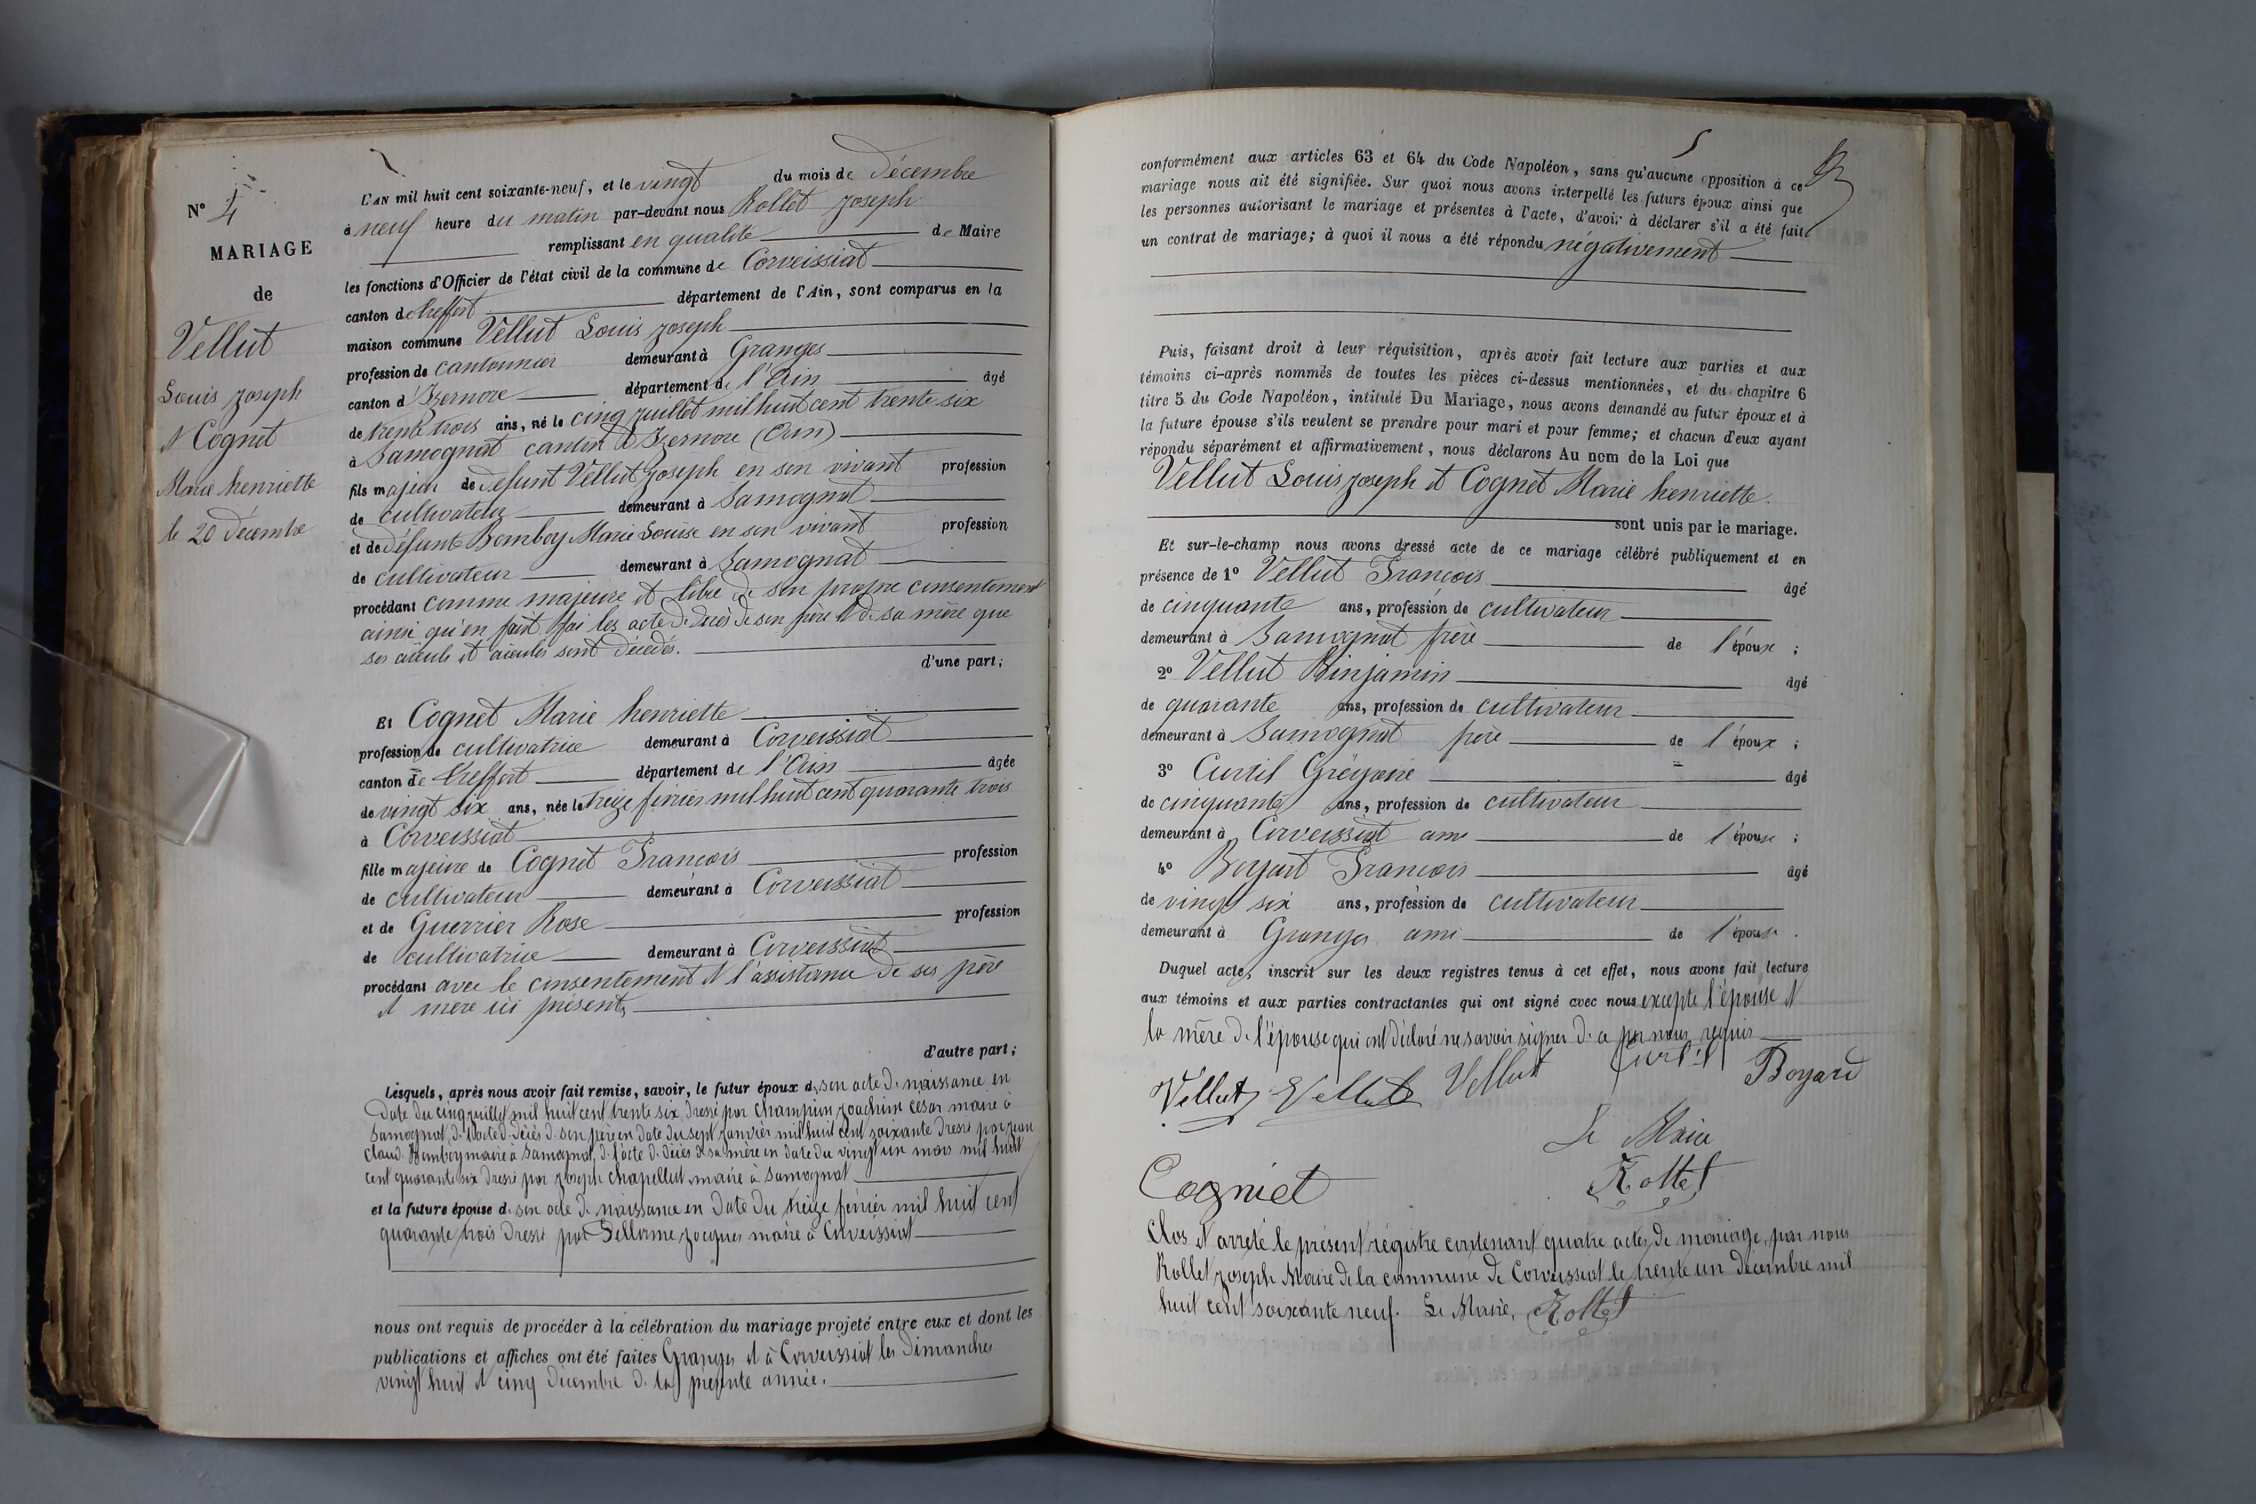 N° 4
MARIAGE
de
Vellut
Louis Joseph
et Cognet
Marie henriette
le 20 décembre
L'AN mil huit cent soixante-neuf, et le vingt du mois de décembre
à neuf heure du matin par-devant nous Rollet Joseph
remplissant en qualité de Maire
les fonctions d'Officier de l'état civil de la commune de Corveissiat
canton de treffort département de l'Ain, sont comparus en la
maison commune Vellut Louis Joseph
profession de cantonnier demeurant à Granges
canton d'Izernore département de l'Ain âgé
de trente trois ans, né le cinq juillet mil huit cent trente six
à Samognat canton d'Izernore (Ain)
fils majeur de défunt Vellut Joseph en son vivant profession
de cultivateur demeurant à Samognat
et de défunte Bomboy Marie Louise en son vivant profession
de cultivateur demeurant à Samognat
procédant comme majeure et libre de son propre consentement
ainsi qu'en font foi les acte de décès de son père et de sa mère que
ses aïeuls et aïeules sont décédés.
d'une part;
Et Cognet Marie henriette
profession de cultivatrice demeurant à Corveissiat
canton de treffort département de l'Ain âgée
de vingt six ans, née le treize février mil huit cent quarante trois
à Corveissiat
fille majeure de Cognet François profession
de cultivateur demeurant à Corveissiat
et de Guerrier Rose profession
de cultivatrice demeurant à Corveissiat
procédant avec le consentement et l'assistance de ses père
et mère ici présents
d'autre part;
Lesquels, après nous avoir fait remise, savoir, le futur époux de son acte de naissance en
date du cinq juillet mil huit cent trente six, dressé par Champion Joachim César maire à
Samognat, de l'acte de décès de son père en date du sept janvier mil huit cent soixante dressé par jean
claude Bomboy maire à Samognat, de l'acte de décès de sa mère en date du vingt un mars mil huit
cent quarante six dressé par Joseph Chapellut maire à Samognat
et la future épouse de son acte de naissance en date du treize février mil huit cent
quarante trois dressé par Jacques maire à Corveissiat
nous ont requis de procéder à la célébration du mariage projeté entre eux et dont les
publications et affiches ont été faites Granges et à Corveissiat les Dimanches
vingt huit et cinq décembre de la présente année.
5
conformément aux articles 63 et 64 du Code Napoléon, sans qu'aucune opposition à ce
mariage nous ait été signifiée. Sur quoi nous avons interpellé les futurs époux ainsi que
les personnes autorisant le mariage et présentes à l'acte, d'avoir à déclarer s'il a été fait
un contrat de mariage; à quoi il nous a été répondu négativement
Puis, faisant droit à leur réquisition, après avoir fait lecture aux parties et aux
témoins ci-après nommés de toutes les pièces ci-dessus mentionnées, et du chapitre 6
titre 5 du Code Napoléon, intitulé Du Mariage, nous avons demandé au futur époux et à
la future épouse s'ils veulent se prendre pour mari et pour femme; et chacun d'eux ayant
répondu séparément et affirmativement, nous déclarons Au nom de la Loi que
Vellut Louis Joseph et Cognet Marie henriette.
sont unis par le mariage.
Et sur-le-champ nous avons dressé acte de ce mariage célébré publiquement et en
présence de 1° Vellut François âgé
de cinquante ans, profession de cultivateur
demeurant à Samognat frère de l'époux;
2° Vellut Binjamin âgé
de quarante ans, profession de cultivateur
demeurant à Samognat frère de l'époux;
3° Curtil Grégoire âgé
de cinquante ans, profession de cultivateur
demeurant à Corveissiat ami de l'épouse;
4° Boyart François âgé
de vingt six ans, profession de cultivateur
demeurant à Granges ami de l'épouse.
Duquel acte, inscrit sur les deux registres tenus à cet effet, nous avons fait lecture
aux témoins et aux parties contractantes qui ont signé avec nous excepté l'épouse et
la mère de l'épouse qui ont déclaré ne savoir signer de ce par nous requis
Vellut Vellut Vellut Curtil Boyard
Le Maire
Cogniet Rollet
Clos et arrêté le présent régistre contenant quatre actes de mariage, par nous
Rollet Joseph Maire de la commune de Corveissiat le trente un décembre mil
huit cent soixante neuf. Le Maire, Rollet